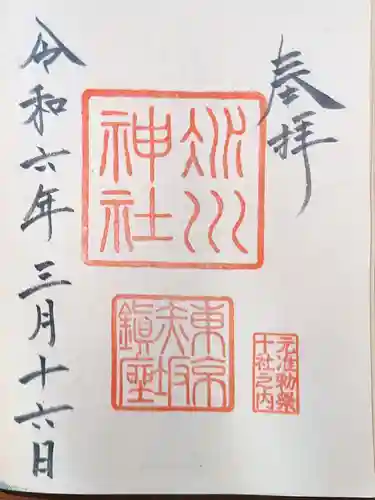 奉拝
氷川
神社
東京
赤坂
鎭座
元准勅祭
十社之内
令和六年三月十六日